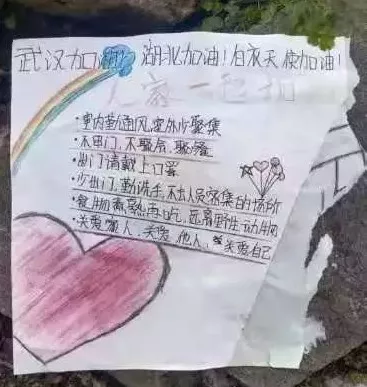 武汉加油! 湖北加油! 白衣天使加油!
大家一起加
·室内勤通风,室外少聚集
·不串门、不聚会、
·出门请戴上口罩
·少出门、勤洗手,不去人员密集的场所
·食物煮熟再吃,远离野生动物
·关爱家人、关爱他人、关爱自己